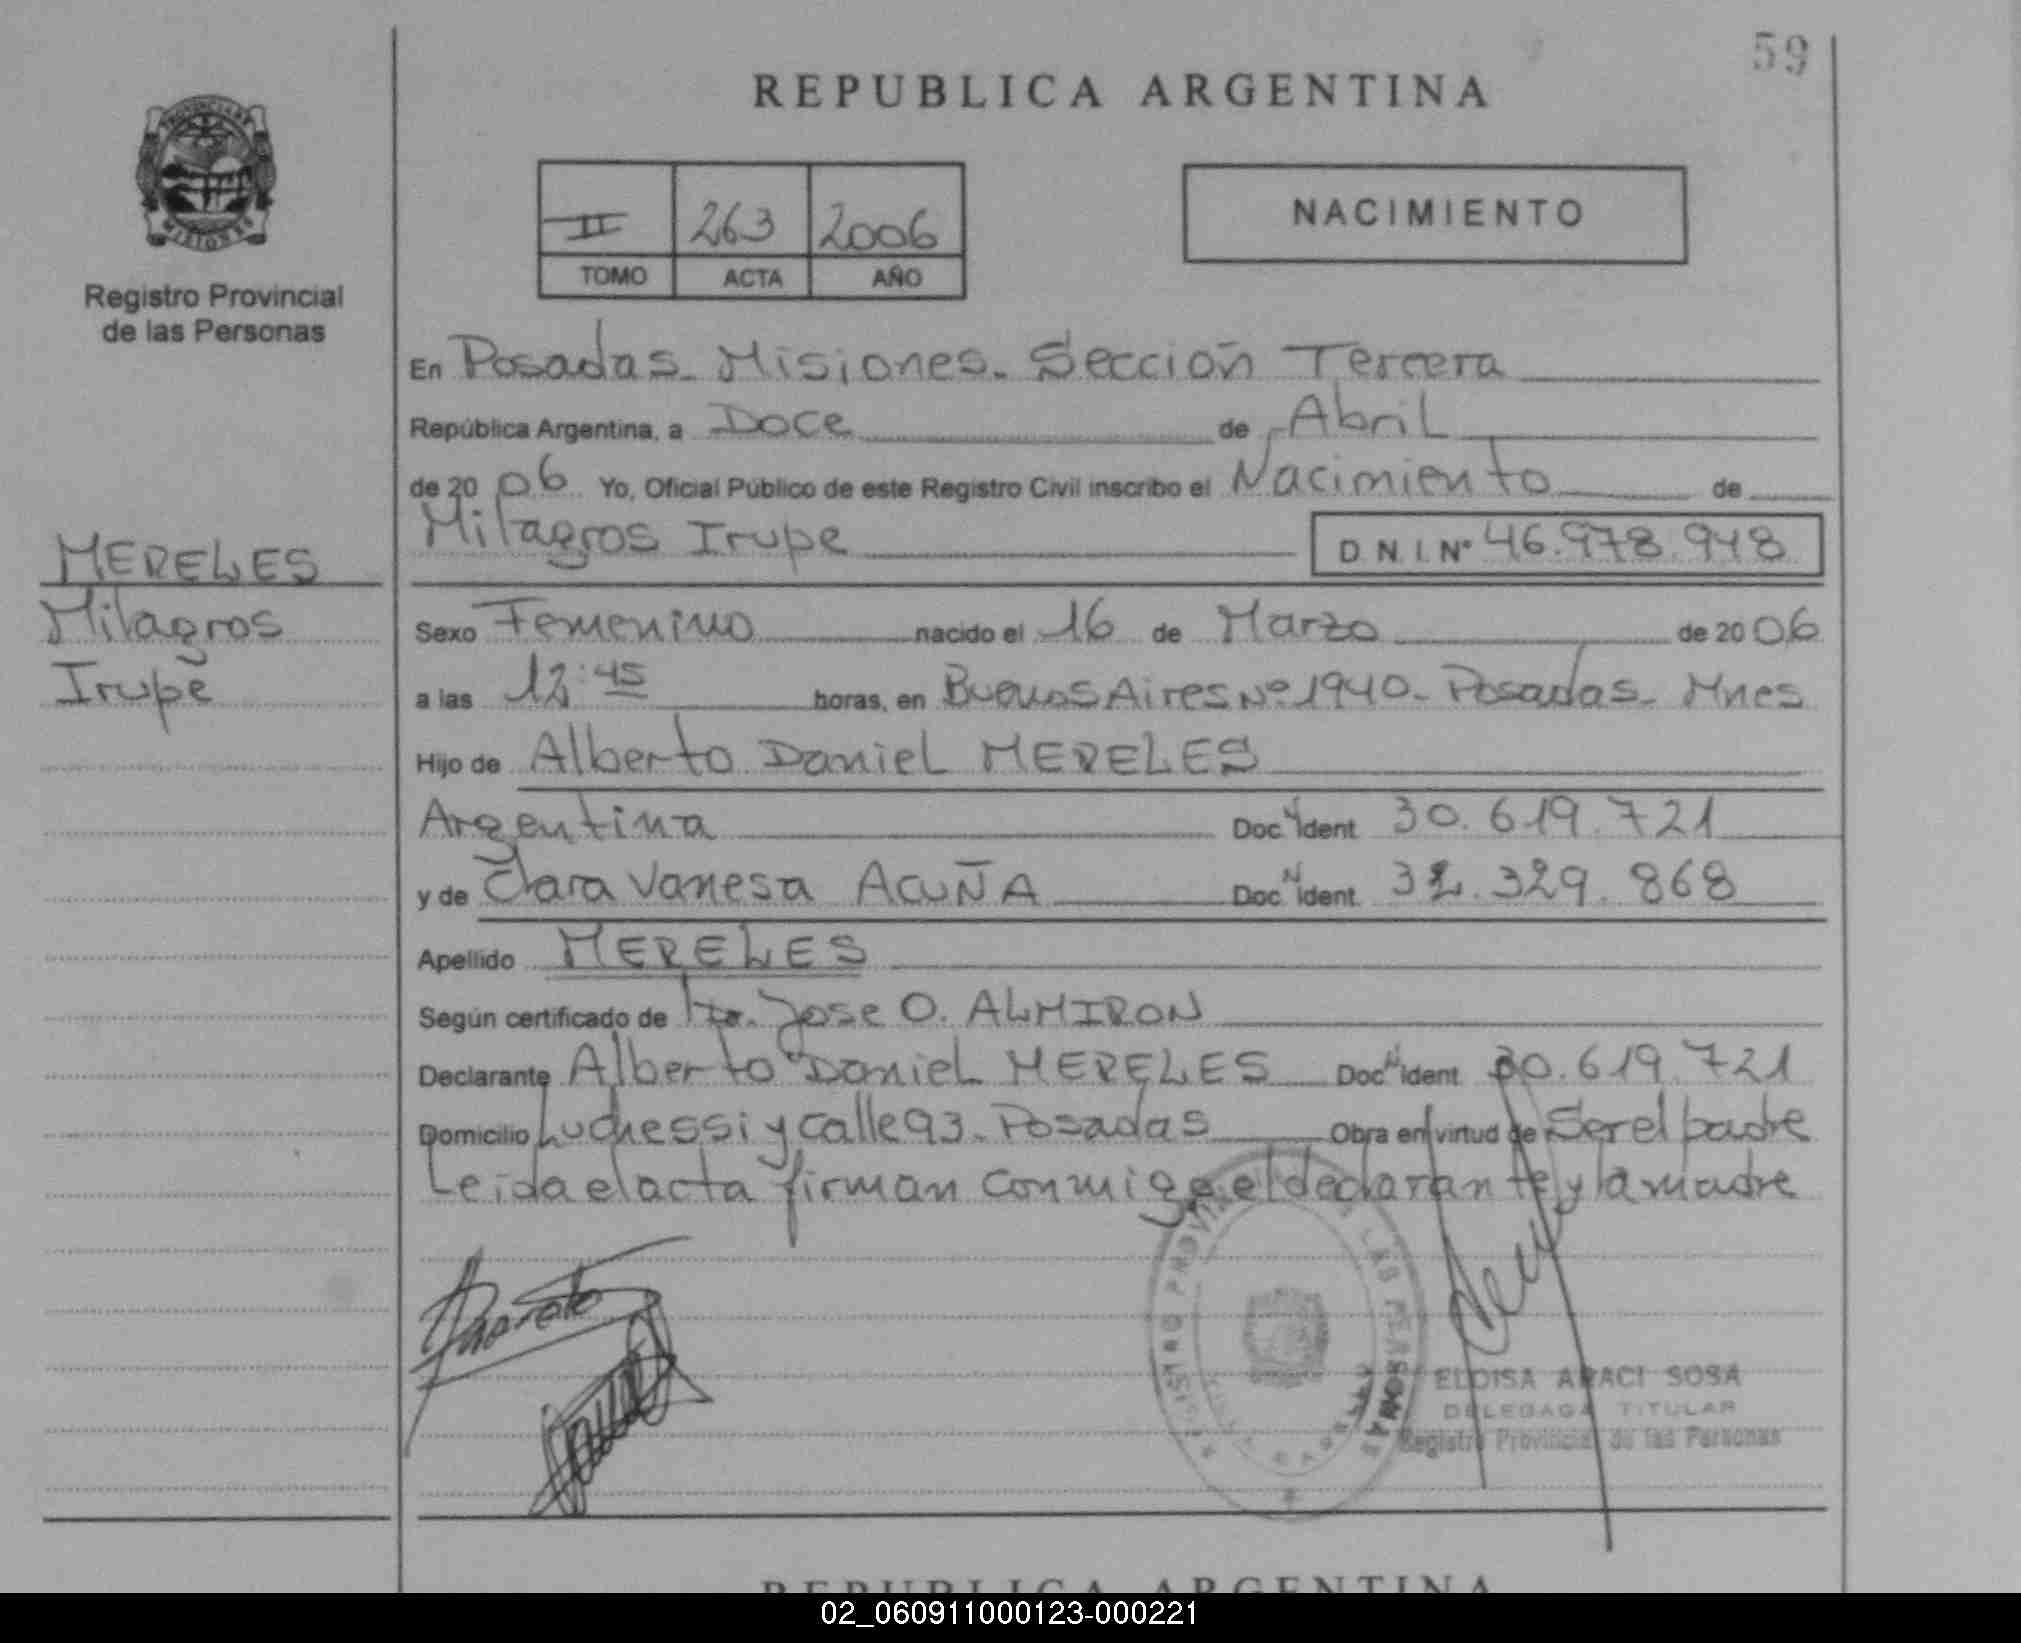 59
REPUBLICA ARGENTINA
PROVINCIA DE
MISIONES
Registro Provincial
de las Personas
II 263 2006
TOMO ACTA AÑO
NACIMIENTO
En Posadas - Misiones - Sección Tercera
República Argentina, a Doce de Abril
de 20 06 Yo, Oficial Público de este Registro Civil inscribo el Nacimiento de
Milagros Irupe D.N.I. Nº 46.978.948
MERELES
Milagros
Irupe
Sexo Femenino nacido el 16 de Marzo de 20 06
a las 12:45 horas, en Buenos Aires Nº 1940 - Posadas - Mnes
Hijo de Alberto Daniel MERELES
Argentina Doc N Ident 30.619.721
y de Clara Vanesa ACUÑA Doc N Ident. 32.329.868
Apellido MERELES
Según certificado de Jose O. ALMIRON
Declarante Alberto Daniel MERELES Doc N Ident 30.619.721
Domicilio Luchessi y calle 93 - Posadas Obra en virtud de Ser el padre
Leida el acta firman conmigo el declarante y la madre
REGISTRO PROVINCIAL DE LAS PERSONAS
ELOISA ARACI SOSA
DELEGADA TITULAR
Registro Provincial de las Personas
REPUBLICA ARGENTINA
02_060911000123-000221